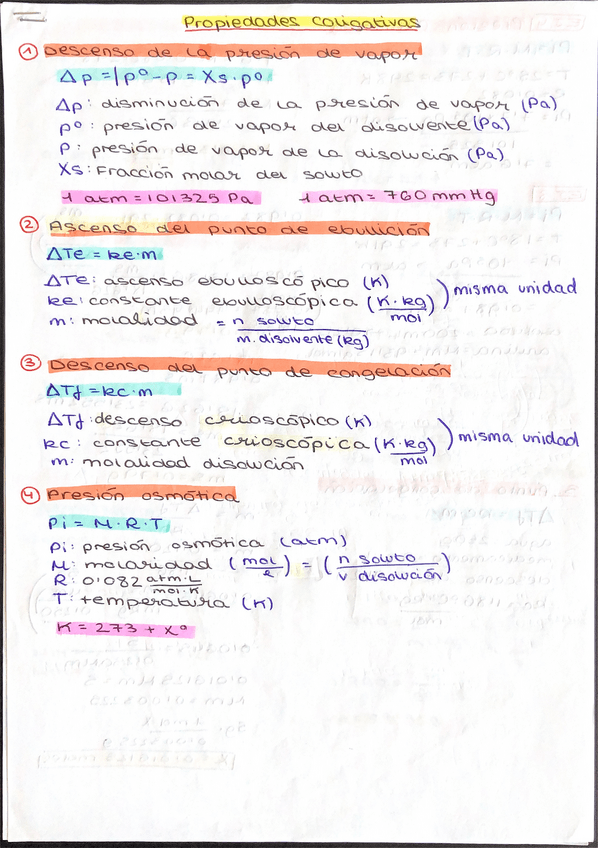 Propiedades coligativas
1 Descenso de la presión de vapor
Δp = |p° - p = Xs · p°
Δp: disminución de la presión de vapor (Pa)
p°: presión de vapor del disolvente (Pa)
P: presión de vapor de la disolución (Pa)
Xs: Fracción molar del soluto
1 atm = 101325 Pa 1 atm = 760 mmHg
2 Ascenso del punto de ebullición
ΔTe = ke · m
ΔTe: ascenso ebulloscópico (K)
ke: constante ebulloscópica (K · kg / mol) ) misma unidad
m: molalidad = n soluto / m. disolvente (kg)
3 Descenso del punto de congelación
ΔTf = kc · m
ΔTf: descenso crioscópico (K)
kc: constante crioscópica (K · kg / mol) ) misma unidad
m: molalidad disolución
4 Presión osmótica
Pi = M · R · T
Pi: presión osmótica (atm)
M: molaridad (mol / l) = (n soluto / v disolución)
R: 0'082 atm · L / mol · K
T: temperatura (K)
K = 273 + x°